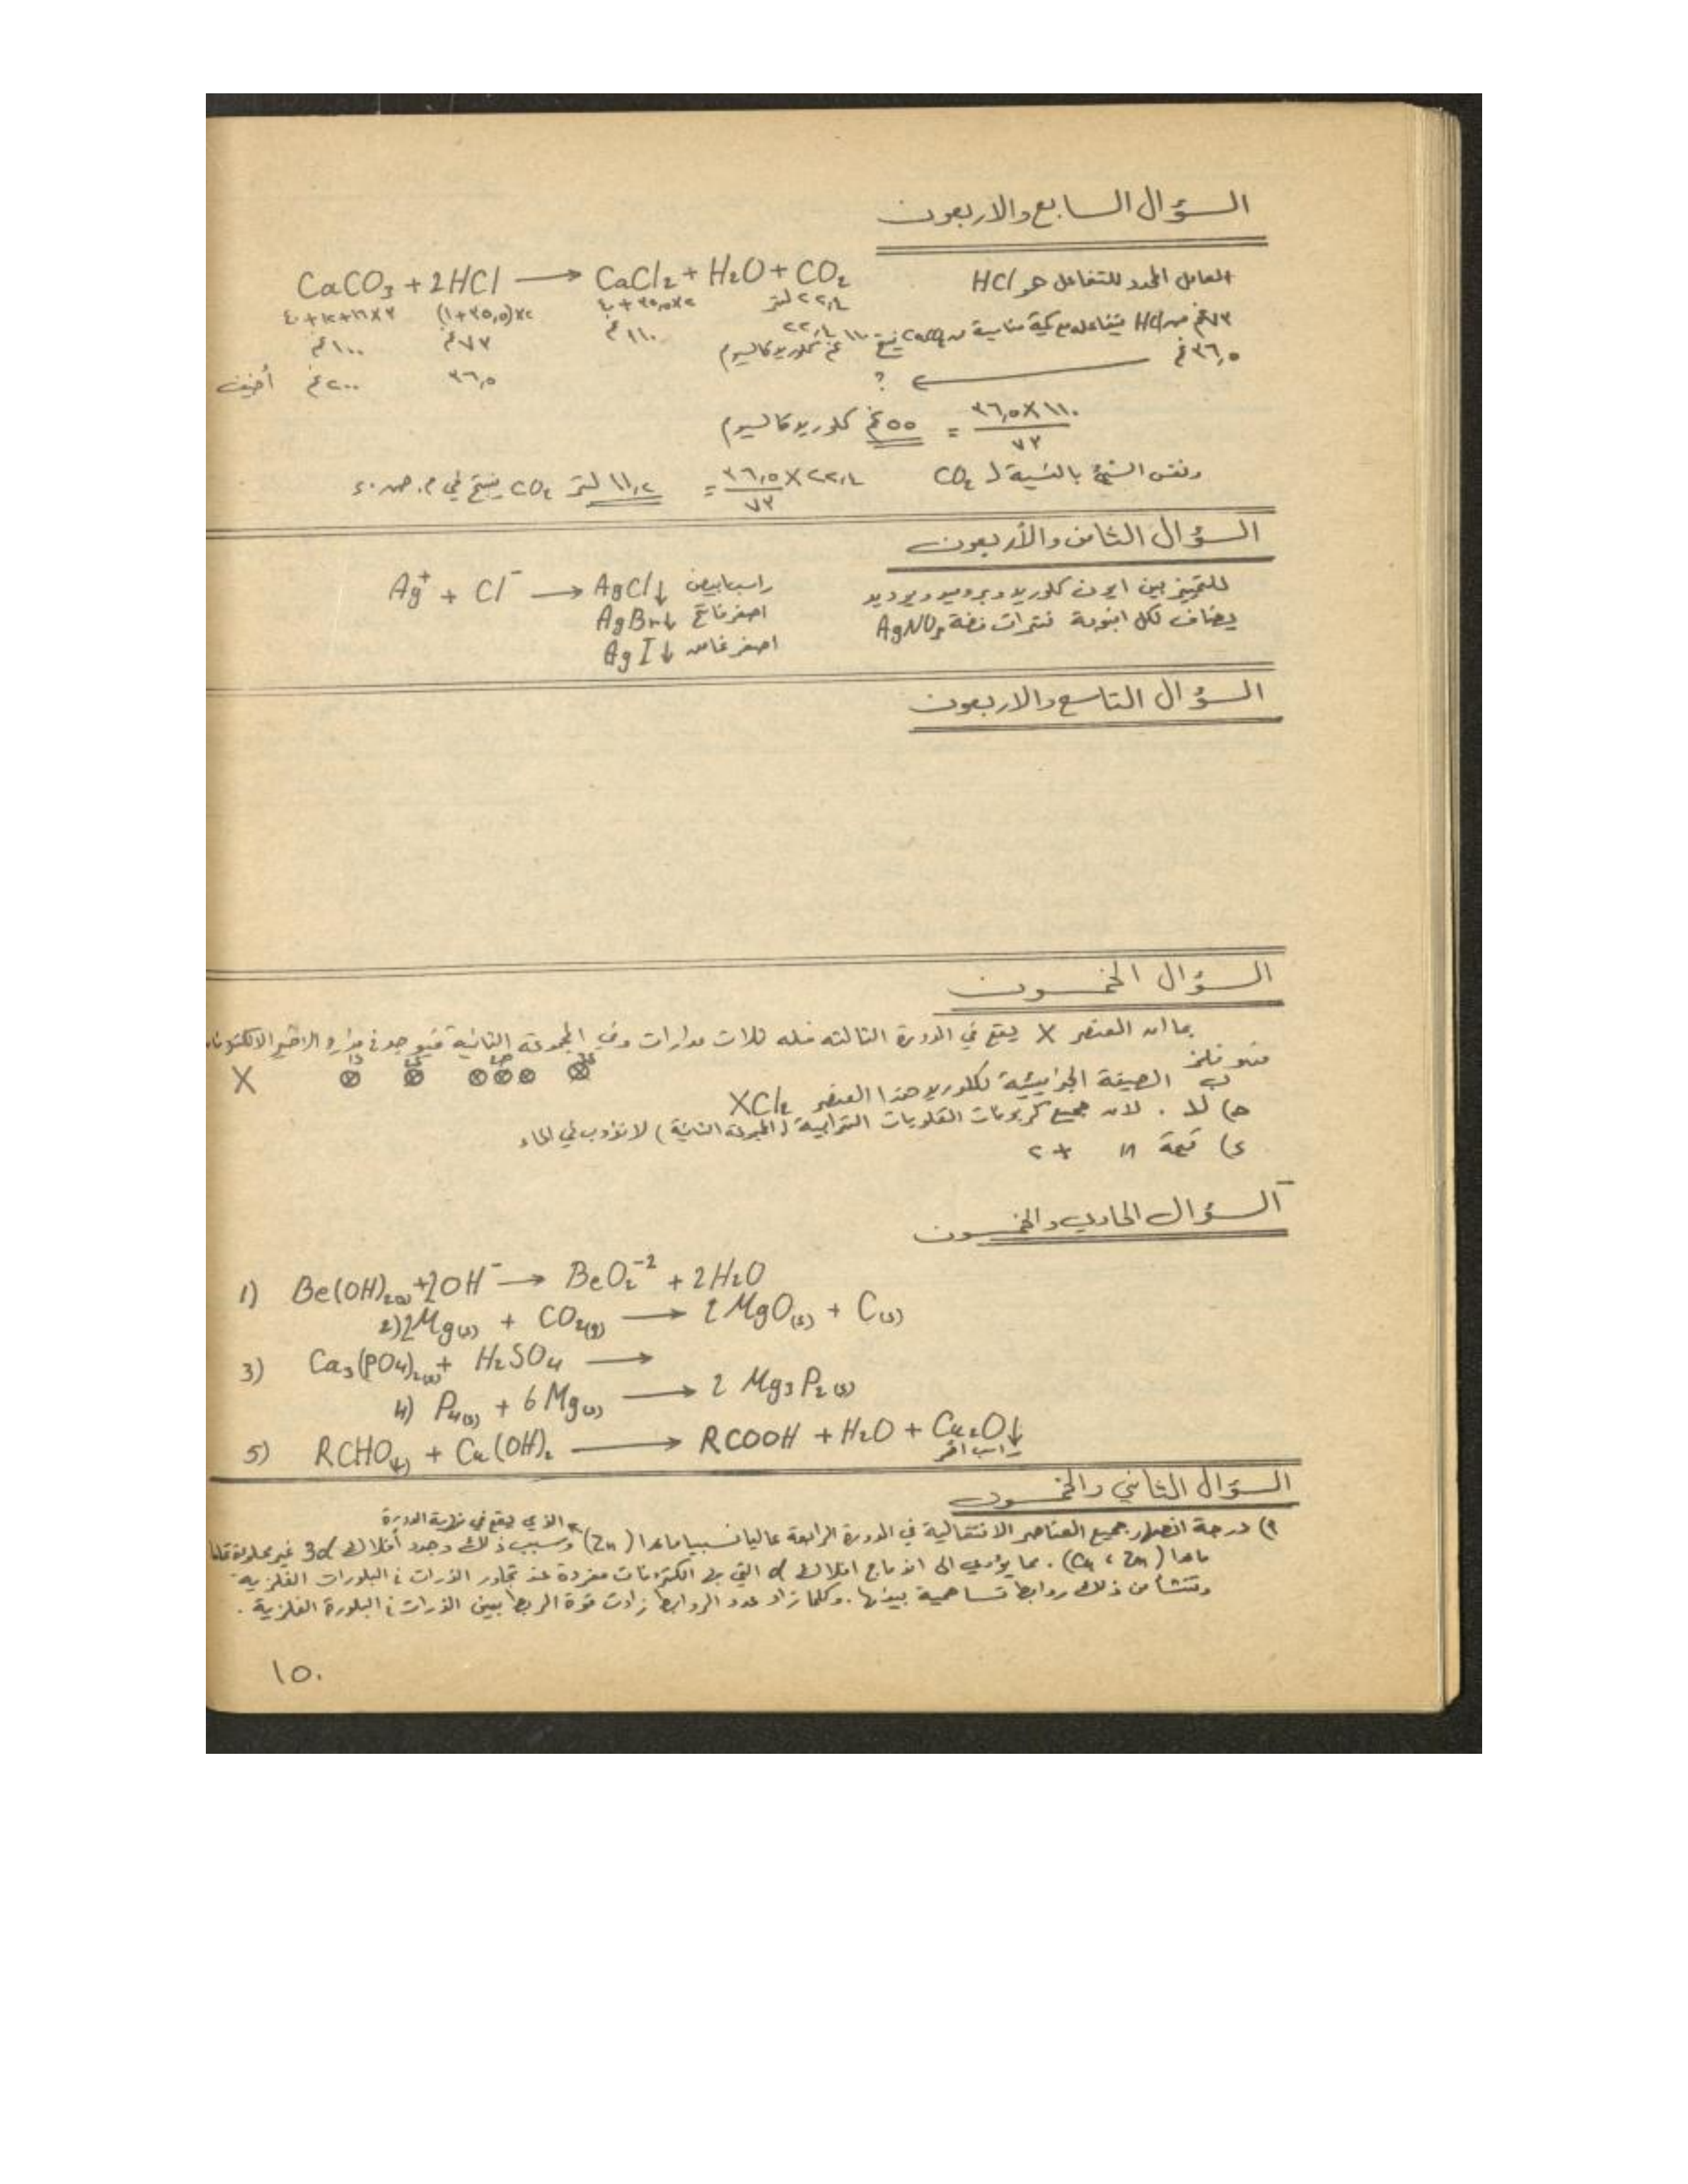 السؤال السابع والاربعون
العامل المحدد للتفاعل هو HCl
CaCO3 + 2HCl ⟶ CaCl2 + H2O + CO2
٤٠+١٢+١٦×٣ (١+٣٥,٥)×٢ ٤٠+٣٥,٥×٢ ٢٢,٤ لتر
١٠٠ غم ٧٣ غم ١١٠ غم ٢٢,٤
٧٣ غم من HCl يتفاعل مع كمية مناسبة من CaCO3 ينتج ١١٠ غم كلوريد كالسيوم
٣٦,٥ غم ⟶ ?
أضيف ٢٠٠ غم ٣٦,٥
٣٦,٥ × ١١٠ / ٧٣ = ٥٥ غم كلوريد كالسيوم
ونفس الشيء بالنسبة لـ CO2 ٣٦,٥ × ٢٢,٤ / ٧٣ = ١١,٢ لتر CO2 ينتج في م. ض. د
السؤال الثامن والأربعون
للتمييز بين ايون كلوريد وبروميد ويوديد
يضاف لكل انبوبة نترات فضة AgNO3
Ag+ + Cl- ⟶ AgCl↓ راسب ابيض
AgBr↓ اصفر فاتح
AgI↓ اصفر غامق
السؤال التاسع والاربعون
السؤال الخمسون
بما ان العنصر X يقع في الدورة الثالثة فله ثلاث مدارات وفي المجموعة الثانية فيوجد في مداره الاخير الالكترونان
فهو فلز
X 1s 2s 2p 3s
ب) الصيغة الجزيئية لكلوريد هذا العنصر XCl2
ج) لا . لان جميع كربونات القلويات الترابية (المجموعة الثانية) لا تذوب في الماء
د) قيمة n +٢
السؤال الحادي والخمسون
1) Be(OH)2(s) + 2OH- ⟶ BeO2-2 + 2H2O
2) 2Mg(s) + CO2(g) ⟶ 2MgO(s) + C(s)
3) Ca3(PO4)2(s) + H2SO4 ⟶
4) P4(s) + 6Mg(s) ⟶ 2 Mg3P2(s)
5) RCHO + Cu(OH)2 ⟶ RCOOH + H2O + Cu2O↓
راسب احمر
السؤال الثاني والخمسون
الذي يقع في نهاية الدورة
٢) درجة انصهار جميع العناصر الانتقالية في الدورة الرابعة عاليا نسبيا ماعدا (Zn) وسبب ذلك وجود أفلاك 3d غير مملوءة تماما
ماعدا (Cu ، Zn) . مما يؤدي الى اندماج افلاك d التي بها الكترونات مفردة عند تجاور الذرات في البلورات الفلزية
وتنشأ من ذلك روابط تساهمية بينها . وكلما زاد عدد الروابط زادت قوة الربط بين الذرات في البلورة الفلزية .
١٥٠